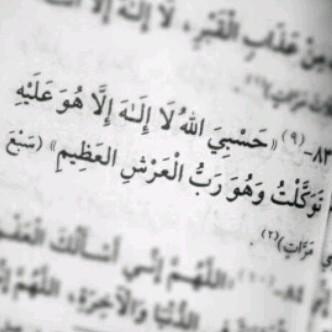 مِنْ عَذَابِ الْقَبْرِ، لَا إِلَهَ إِلَّا
مَرَّاتٍ)(١)
٨٣-(٩) «حَسْبِيَ اللهُ لَا إِلَـٰهَ إِلَّا هُوَ عَلَيْهِ
تَوَكَّلْتُ وَهُوَ رَبُّ الْعَرْشِ الْعَظِيمِ» (سَبْعَ
مَرَّاتٍ)(٢).
٨٤-(١٠) «اللَّهُمَّ إِنِّي أَسْأَلُكَ الْعَفْوَ
فِي الدُّنْيَا وَالْآخِرَةِ، اللَّهُمَّ إِنِّي